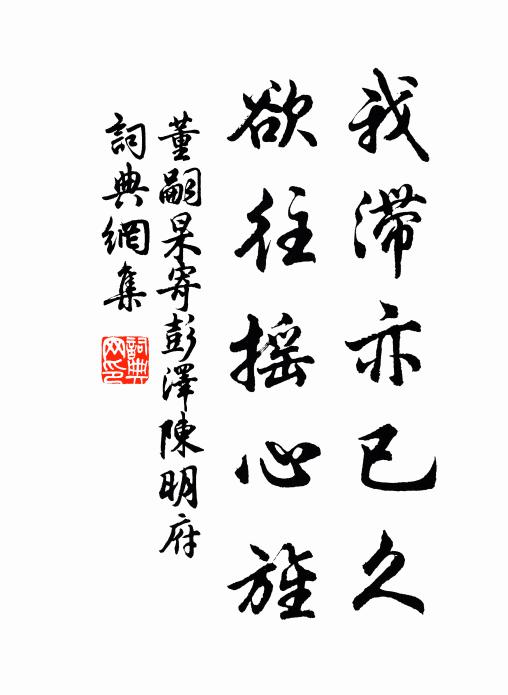 我滞亦已久
欲往摇心旌
董嗣杲寄彭澤陳明府
詞典網集
詞典网印